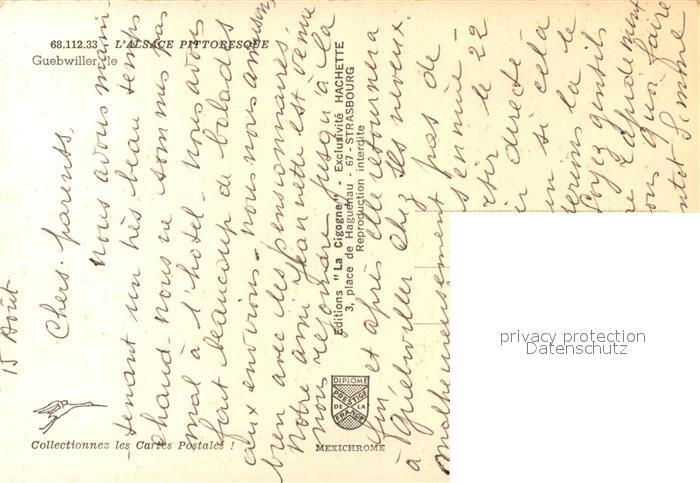 68.112.33 L'ALSACE PITTORESQUE
Guebwiller, le
15 Août
Chers parents
Nous avons main-
tenant un très beau temps
chaud nous ne sommes pas
mal à l'hotel - nous avons
fait beaucoup de balades
aux environs - nous nous amusons
bien avec les pensionnaires.
Notre amie Jeannette est venue
nous rejoindre jusqu'à la
fin et après elle retournera
à Guebwiller chez ses neveux.
malheureusement pas de
semaine
partir le 22
directe
si cela
la le
Soyez gentils
rapidement
quoi faire
Simone
Editions "La Cigogne" - Exclusivité HACHETTE
3, place de Haguenau - 67 - STRASBOURG
Reproduction interdite
DIPLOME
PRESTIGE
DE LA
FRANCE
MEXICHROME
Collectionnez les Cartes Postales !
privacy protection
Datenschutz